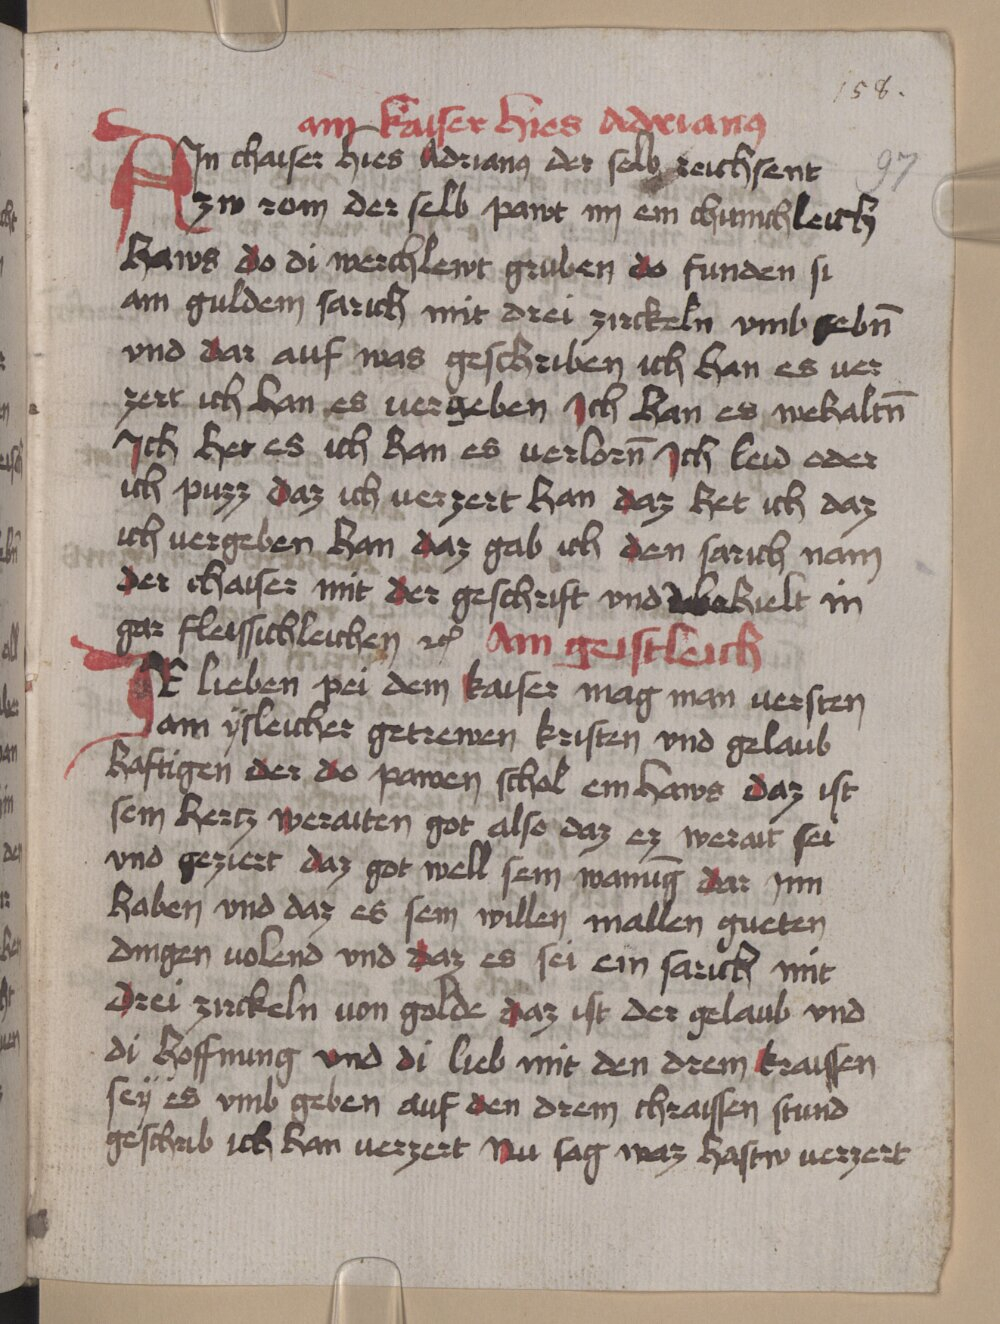 158.
ain kaiser hies Adrianus
97
AIn chaiser hies Adrianus der selb reichsent
zw rom der selb pawt im ein chunichleich
haws do di werchlewt gruben do funden si
ain guldein sarich mit drei zirckeln vmb gebn̄
vnd dar auf was geschriben ich han es ver
zert ich han es vergeben Ich han es wehaltn̄
Ich het es ich han es verlorn̄ Ich leid oder
ich puzz daz ich verzert han daz het ich daz
ich vergeben han daz gab ich den sarich nam
der chaiser mit der geschrift vnd wehielt in
gar fleissichleichen etc Ain geistleich
IE lieben pei dem kaiser mag man versten
ain ÿsleicher getrewen kristen vnd gelaub
haftigen der do pawen schol ein haws daz ist
sein hertz weraiten got also daz ez werait sei
vnd geziert daz got well sein wanūg dar Inn
haben vnd daz es sein willen in allen gueten
dingen volend vnd daz es sei ein sarich mit
drei zirckeln von golde daz ist der gelaub vnd
di hoffnung vnd di lieb mit den drein kraissen
seÿ es vmb geben auf den drein chraissen stund
geschrib ich han verzert Nu sag waz hastw verzert